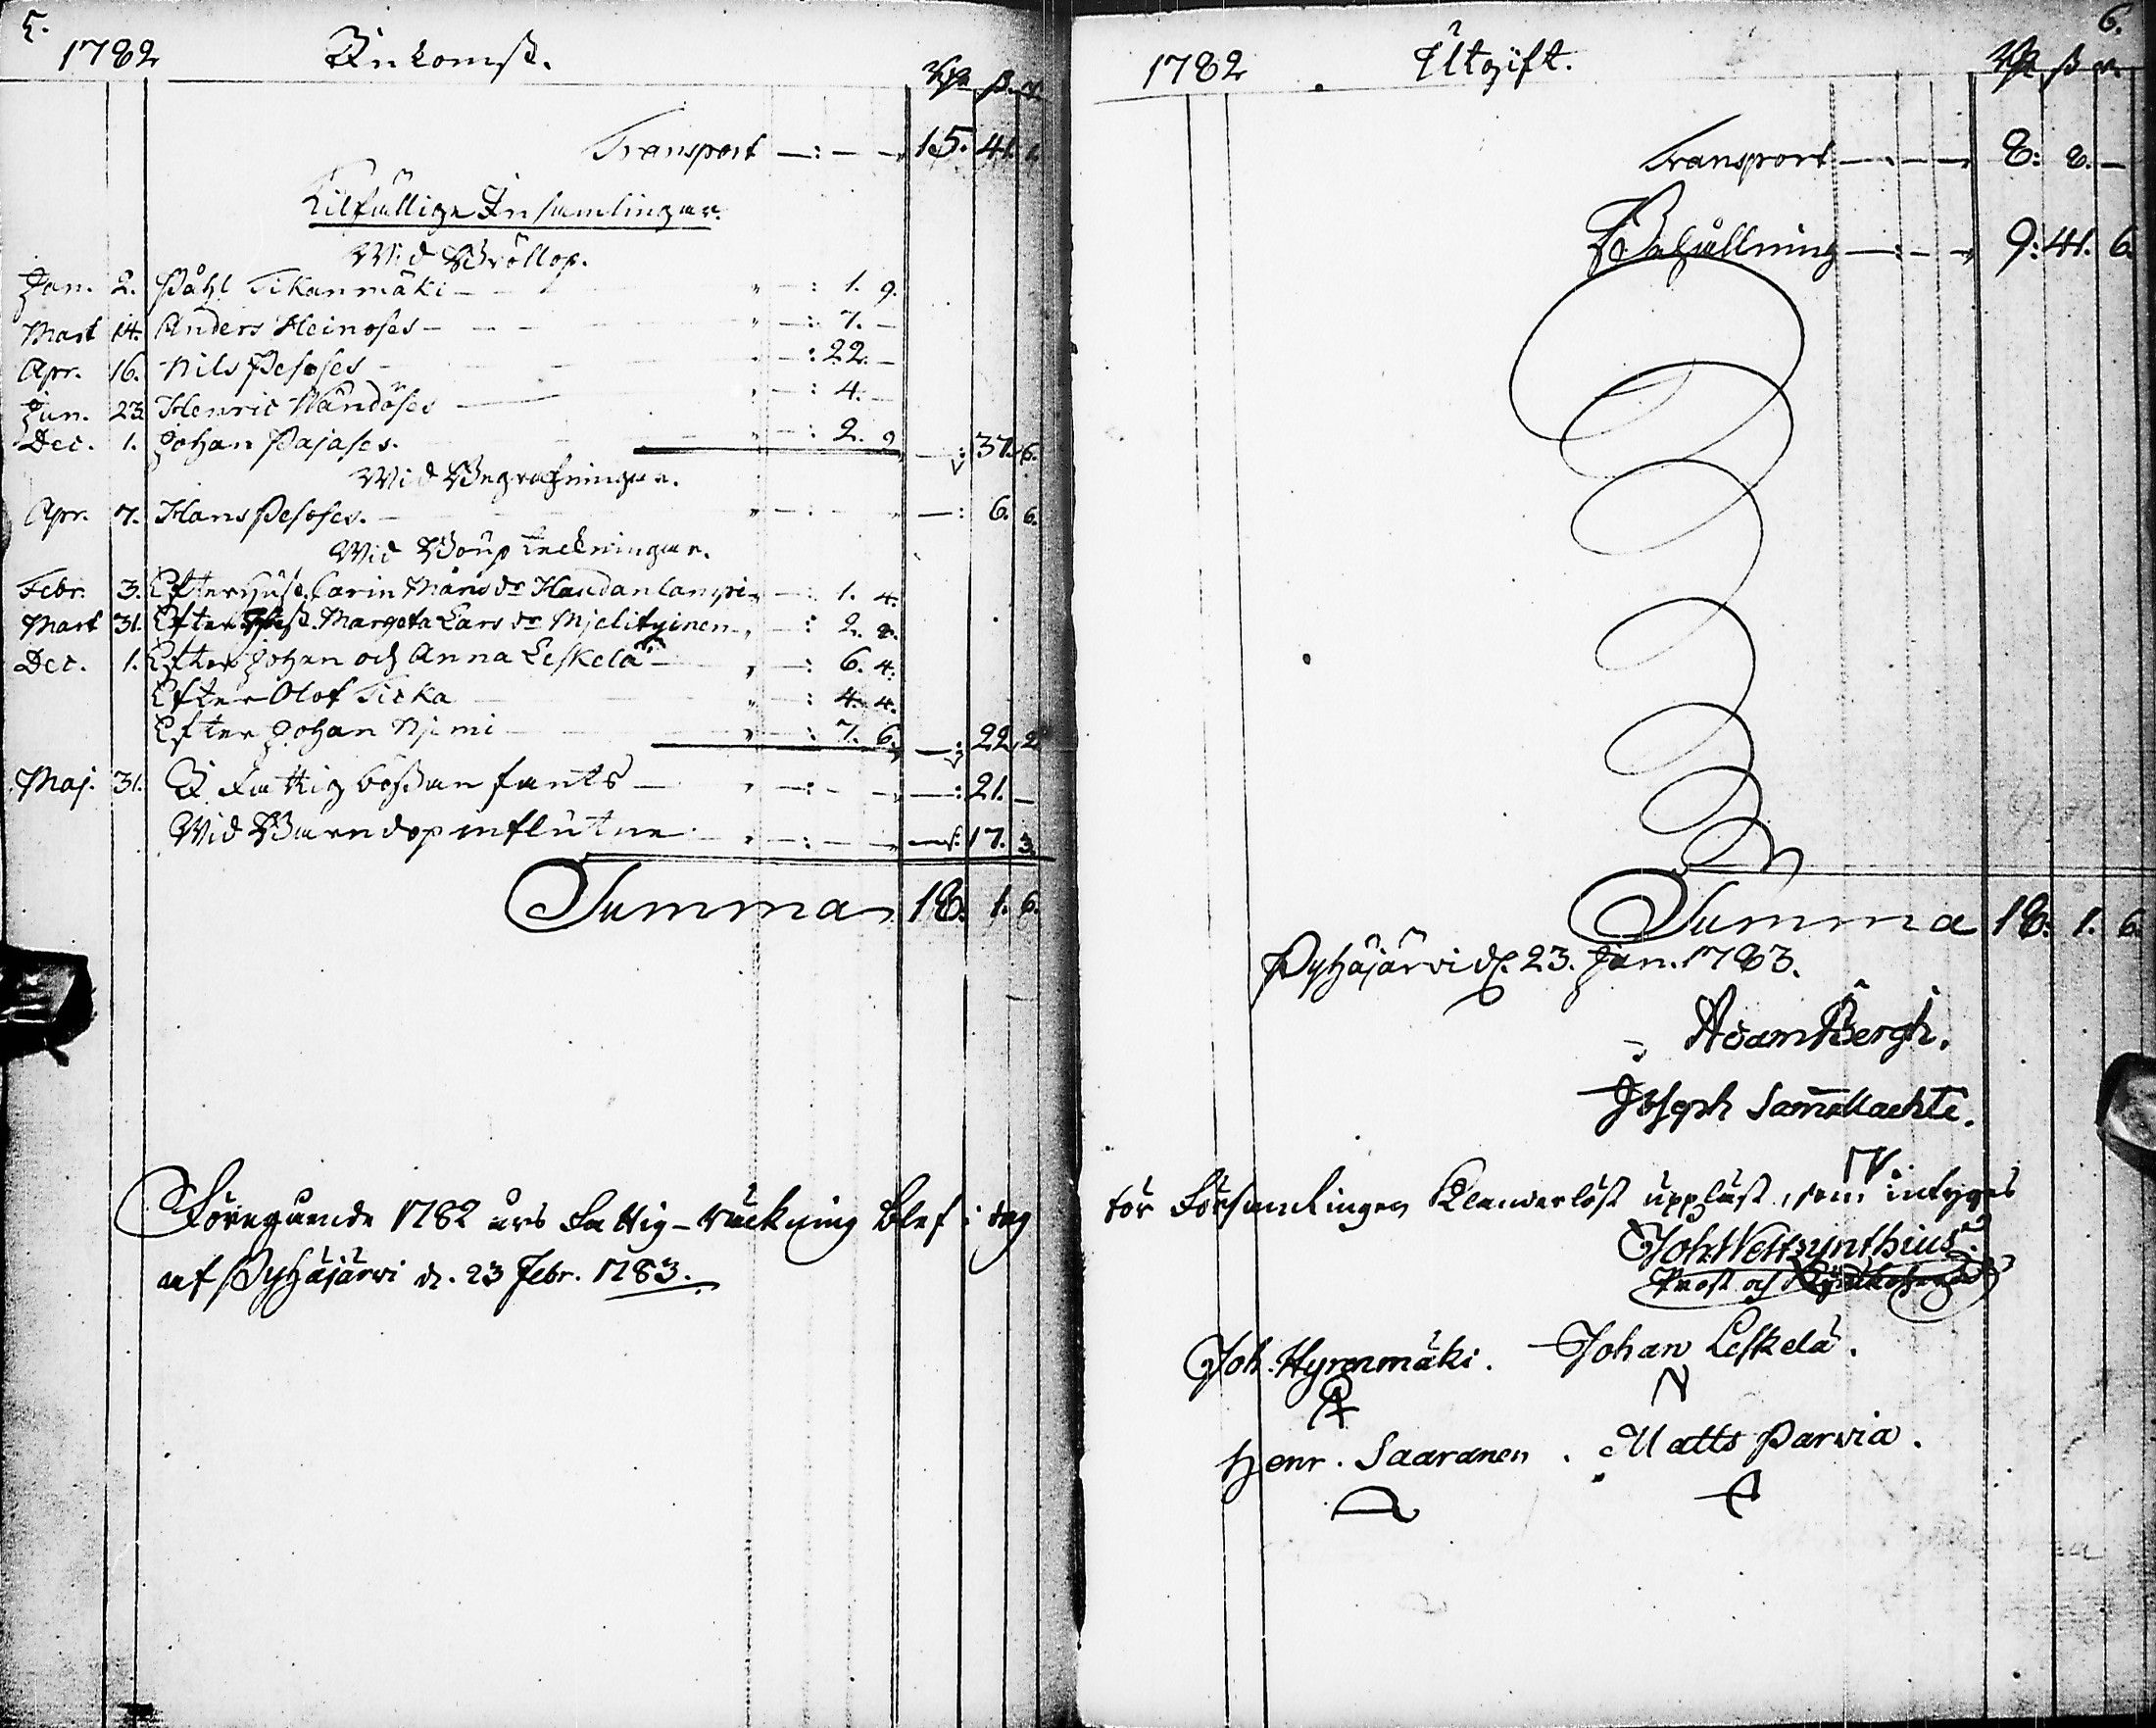 5.
1782 Inkomst.
Rd ß. r.
Transport —:— 15. 41. 1.
Tilfällige Insamlingar.
Wid Bröllop.
Jan. 2. Påhl Tikanmäki — " —: 1. 9.
Mart 14. Anders Heinoses — " —: 7. —
Apr. 16. Nils Pesoses — " —: 22. —
Jun. 23. Henric Wändöses — " —: 4. —
Dec. 1. Johan Pajases. " —: 2. 9. —: 37. 6.
Wid Begrafningar.
Apr. 7. Hans Pesoses. — " —: — —: 6. 6.
Wid Boupteckningar.
Febr. 3. Efter Hust. Carin Månsdr Haudanlampi " —: 1. 4.
Mart 31. Efter Margeta Larsdr Mjelityinen " —: 2. 8.
Dec. 1. Efter Johan och Anna Leskelä — " —: 6. 4.
Efter Olof Ticka — " —: 4. 4.
Efter Johan Njemi — " —: 7. 6. —: 22. 2.
Maj. 31. I Fattigbössan fants — " —: — —: 21. —
Wid Barndop influtne — " —: — —: 17. 3.
Summa 18. 1. 6.
Föregående 1782 års Fattig-räckning blef i dag
af Pyhäjärvi d. 23 Febr. 1783.
6.
1782 Utgift.
Rd ß r.
Transport — 8: 8. —
Behållning —:— 9: 41. 6.
Summa 18: 1. 6.
Pyhäjärvi d. 23. Jan. 1783.
Adam Bergh.
Joseph Samallachti.
för Församlingen Klanderlöst uppläst, som intygas
Joh. Westzynthius.
Prost och Kyrkoherde
Joh. Hyrenmäki. Johan Leskelä.
Henr. Saaranen. Matts Parvia.